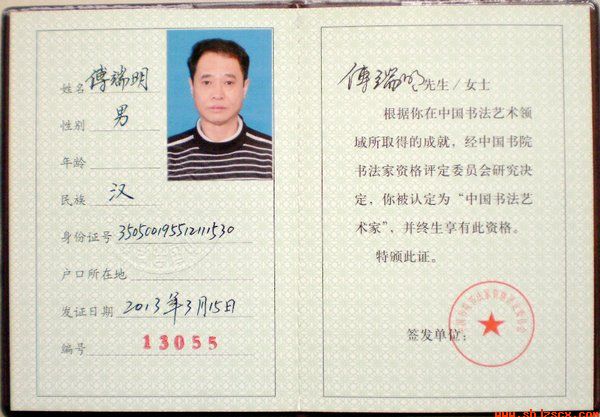 姓名 傅瑞明
性别 男
年龄
民族 汉
身份证号 350500195512111530
户口所在地
发证日期 2013年3月15日
编号 13055
傅瑞明先生/女士
根据你在中国书法艺术领
域所取得的成就，经中国书院
书法家资格评定委员会研究决
定，你被认定为“中国书法艺
术家”，并终生享有此资格。
特颁此证。
签发单位：